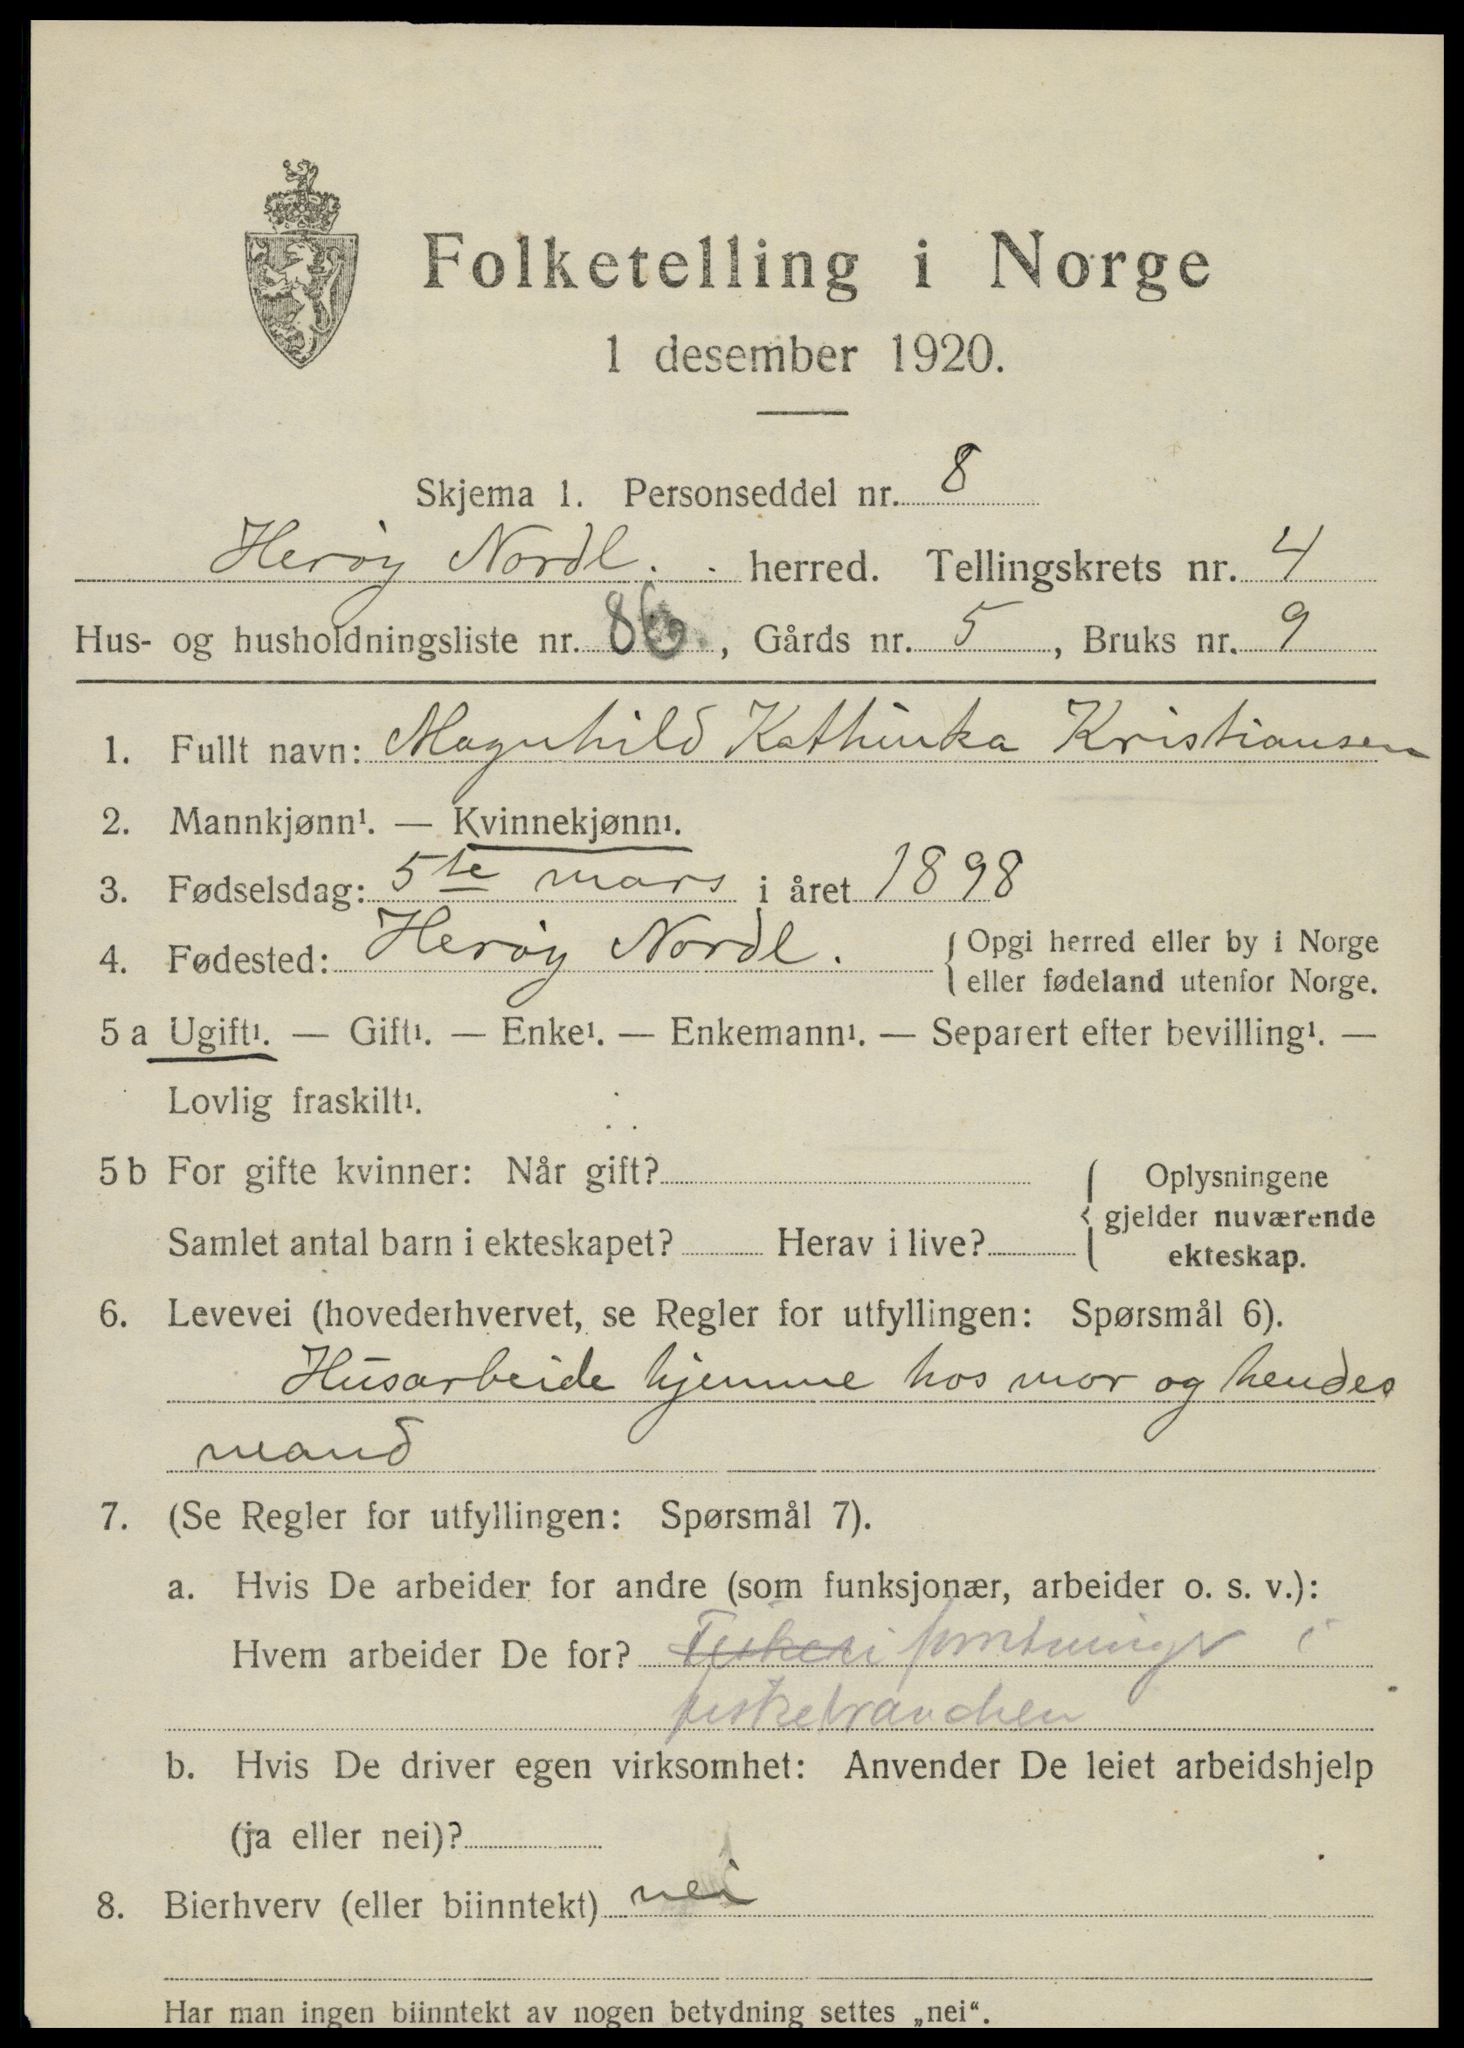 Folketelling i Norge
1 desember 1920.
Skjema 1. Personseddel nr. 8
Herøy Nordl. herred. Tellingskrets nr. 4
Hus- og husholdningsliste nr. 86, Gårds nr. 5, Bruks nr. 9
1. Fullt navn: Magnhild Kathinka Kristiansen
2. Mannkjønn¹. — Kvinnekjønn¹.
3. Fødselsdag: 5te mars i året 1898
4. Fødested: Herøy Nordl. { Opgi herred eller by i Norge
eller fødeland utenfor Norge.
5 a Ugift¹. — Gift¹. — Enke¹. — Enkemann¹. — Separert efter bevilling¹. —
Lovlig fraskilt¹.
5 b For gifte kvinner: Når gift?
Samlet antal barn i ekteskapet? Herav i live?
{ Oplysningene
gjelder nuværende
ekteskap.
6. Levevei (hovederhvervet, se Regler for utfyllingen: Spørsmål 6).
Husarbeide hjemme hos mor og hendes
mand
7. (Se Regler for utfyllingen: Spørsmål 7).
a. Hvis De arbeider for andre (som funksjonær, arbeider o. s. v.):
Hvem arbeider De for? Fiskeri i
fiskebranchen
b. Hvis De driver egen virksomhet: Anvender De leiet arbeidshjelp
(ja eller nei)?
8. Bierhverv (eller biinntekt) nei
Har man ingen biinntekt av nogen betydning settes „nei“.